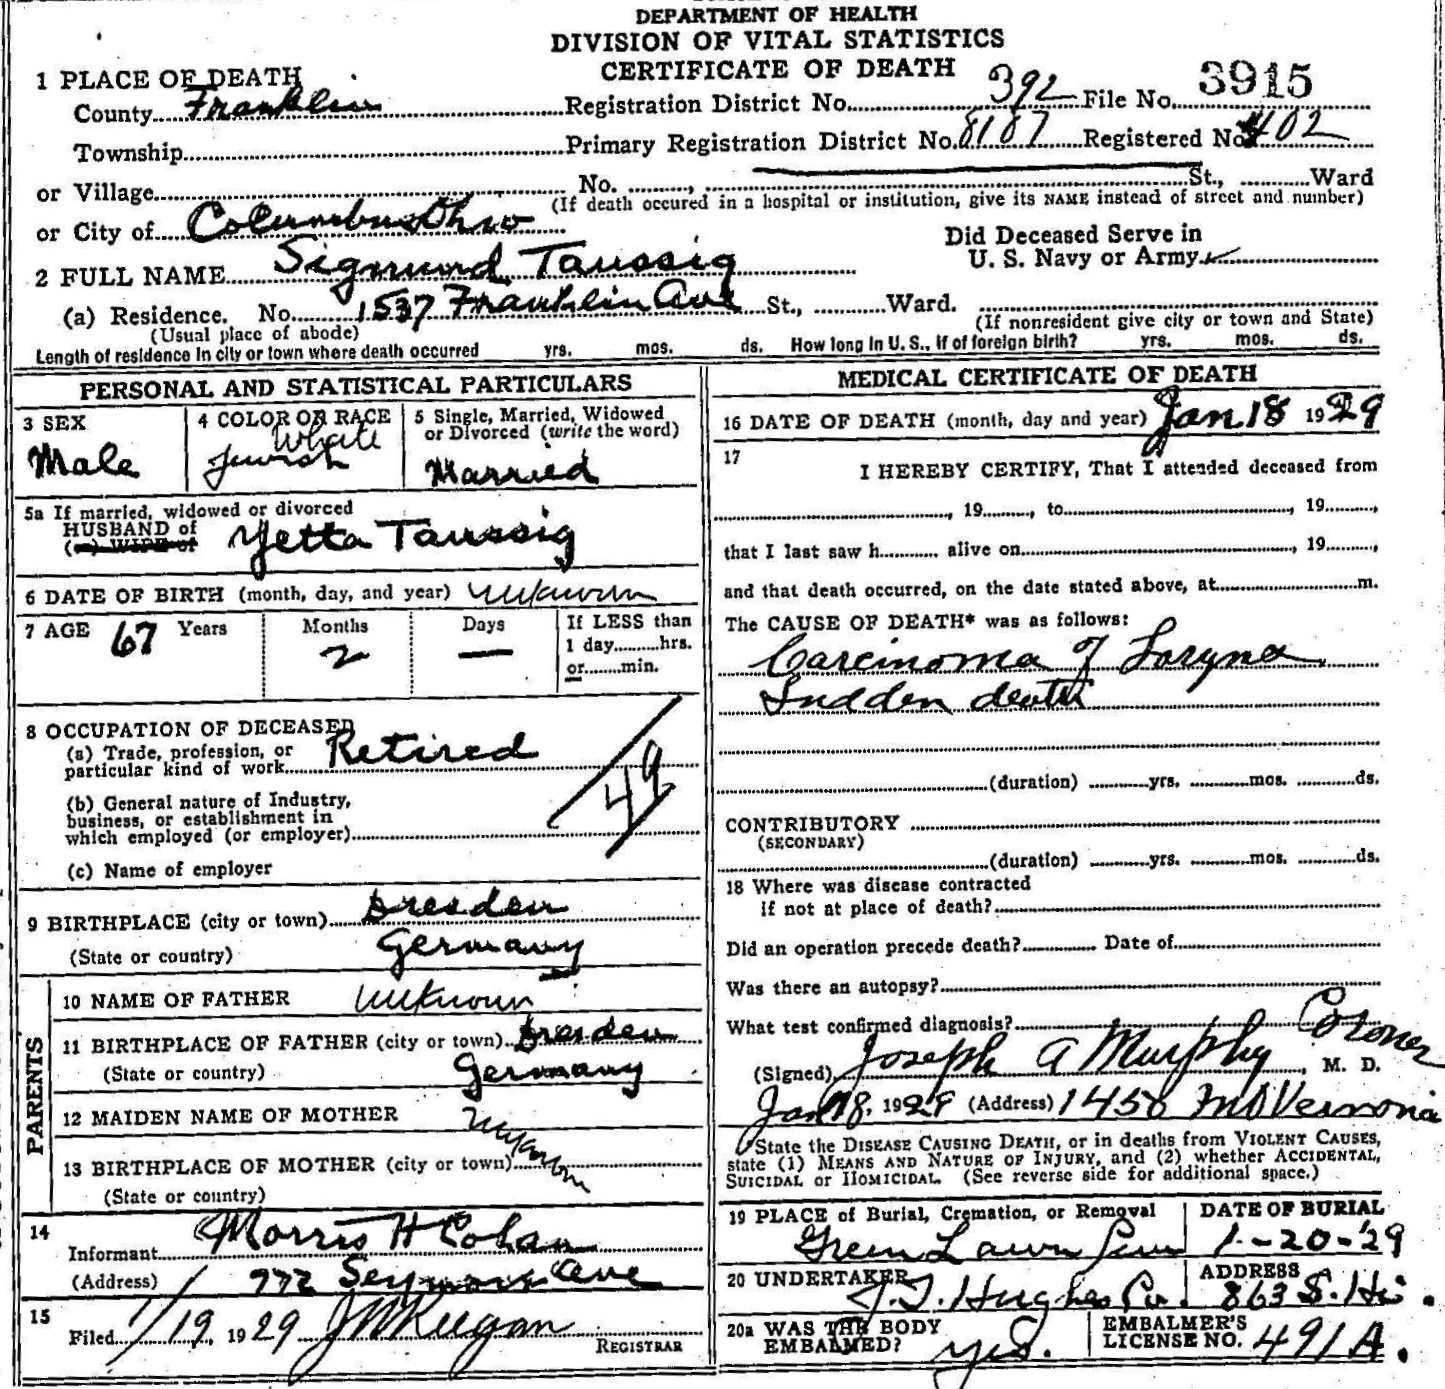 DEPARTMENT OF HEALTH
DIVISION OF VITAL STATISTICS
CERTIFICATE OF DEATH
1 PLACE OF DEATH
County Franklin Registration District No. 392 File No. 3915
Township Primary Registration District No. 8187 Registered No. 402
or Village No. , St., Ward
(If death occured in a hospital or institution, give its NAME instead of street and number)
or City of Columbus Ohio
Did Deceased Serve in
U. S. Navy or Army
2 FULL NAME Sigmund Taussig
(a) Residence. No. 1537 Franklin Ave St., Ward.
(Usual place of abode) (If nonresident give city or town and State)
Length of residence in city or town where death occurred yrs. mos. ds. How long in U. S., if of foreign birth? yrs. mos. ds.
PERSONAL AND STATISTICAL PARTICULARS
3 SEX
Male
4 COLOR OR RACE
White
Jewish
5 Single, Married, Widowed
or Divorced (write the word)
Married
5a If married, widowed or divorced
HUSBAND of
(or) WIFE of
Yetta Taussig
6 DATE OF BIRTH (month, day, and year) unknown
7 AGE 67 Years Months 2 Days — If LESS than
1 day hrs.
or min.
8 OCCUPATION OF DECEASED
(a) Trade, profession, or
particular kind of work Retired
49
(b) General nature of Industry,
business, or establishment in
which employed (or employer)
(c) Name of employer
9 BIRTHPLACE (city or town) Dresden
(State or country) Germany
PARENTS
10 NAME OF FATHER unknown
11 BIRTHPLACE OF FATHER (city or town) Dresden
(State or country) Germany
12 MAIDEN NAME OF MOTHER unknown
13 BIRTHPLACE OF MOTHER (city or town)
(State or country)
14
Informant Morris H Cohan
(Address) 772 Seymour Ave
15
Filed 1/19, 1929 REGISTRAR
MEDICAL CERTIFICATE OF DEATH
16 DATE OF DEATH (month, day and year) Jan 18 1929
17
I HEREBY CERTIFY, That I attended deceased from
, 19 , to , 19 ,
that I last saw h alive on , 19 ,
and that death occurred, on the date stated above, at m.
The CAUSE OF DEATH* was as follows:
Carcinoma of Larynx
Sudden death
(duration) yrs. mos. ds.
CONTRIBUTORY
(SECONDARY)
(duration) yrs. mos. ds.
18 Where was disease contracted
if not at place of death?
Did an operation precede death? Date of
Was there an autopsy?
What test confirmed diagnosis?
(Signed) Joseph A Murphy Coroner, M. D.
Jan 18, 1929 (Address) 1458 Mt Vernon
State the DISEASE CAUSING DEATH, or in deaths from VIOLENT CAUSES,
state (1) MEANS AND NATURE OF INJURY, and (2) whether ACCIDENTAL,
SUICIDAL or HOMICIDAL. (See reverse side for additional space.)
19 PLACE of Burial, Cremation, or Removal
Green Lawn
DATE OF BURIAL
1-20-'29
20 UNDERTAKER
J. T. Hughes Co.
ADDRESS
863 S. Hi.
20a WAS THE BODY
EMBALMED? yes.
EMBALMER'S
LICENSE NO. 491A.